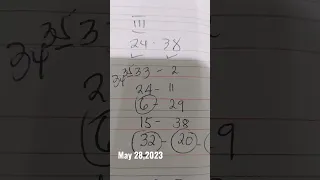 III
24 - 38
35 33 - 2
34
24 - 11
6 - 29
15 - 38
32 - 20 -
May 28,2023